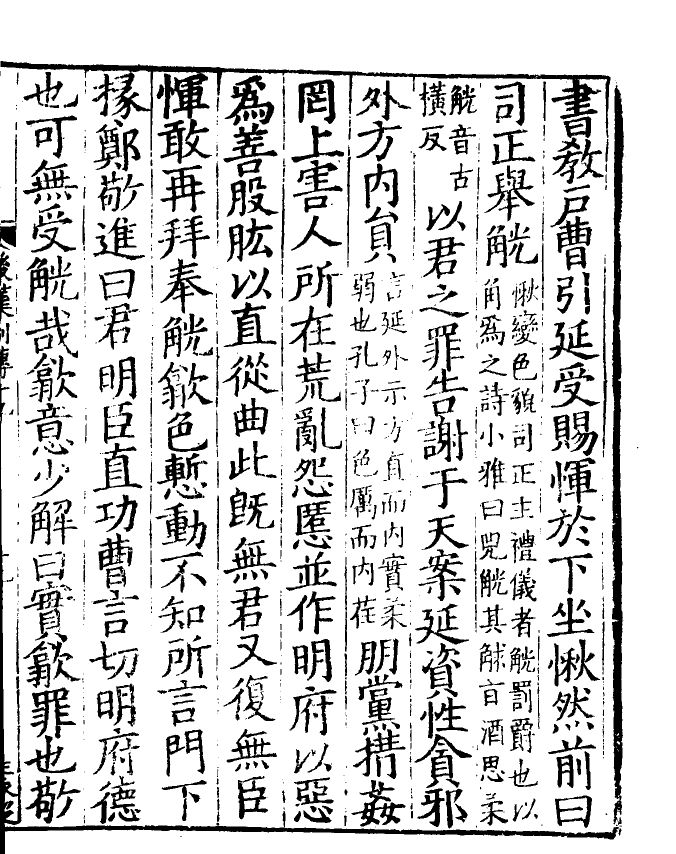 書教戸曹引延受賜惲於下坐愀然前曰
司正舉觥愀變色貌司正主禮儀者觥罰爵也以角爲之詩小雅曰兕觥其觩旨酒思柔
觥音古橫反以君之罪告謝于天案延資性貪邪
外方内負言延外示方直而内實柔弱也孔子曰色厲而内荏朋黨搆姦
罔上害人所在荒亂怨慝並作明府以惡
爲善股肱以直從曲此旣無君又復無臣
惲敢再拜奉觥歙色慙動不知所言門下
掾鄭敬進曰君明臣直功曹言切明府德
也可無受觥哉歙意少解曰實歙罪也敬
後漢列傳十九